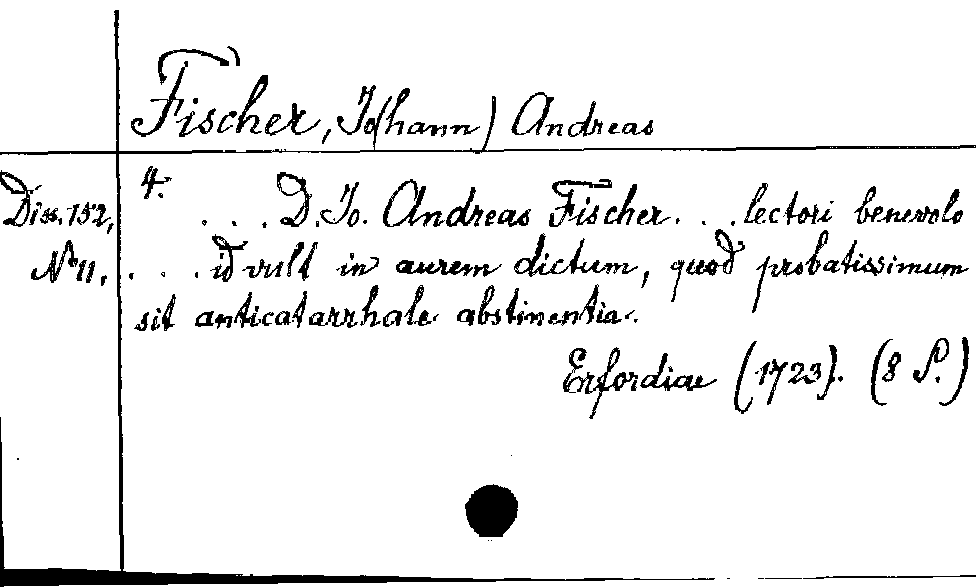 Fischer, Jo(hann) Andreas
4.
Diss. 152, . . . D. Jo. Andreas Fischer . . . lectori benevolo
No 11. . . . id vult in aurem dictum, quod probatissimum
sit anticatarrhale abstinentia.
Erfordiae (1723). (8 S.)